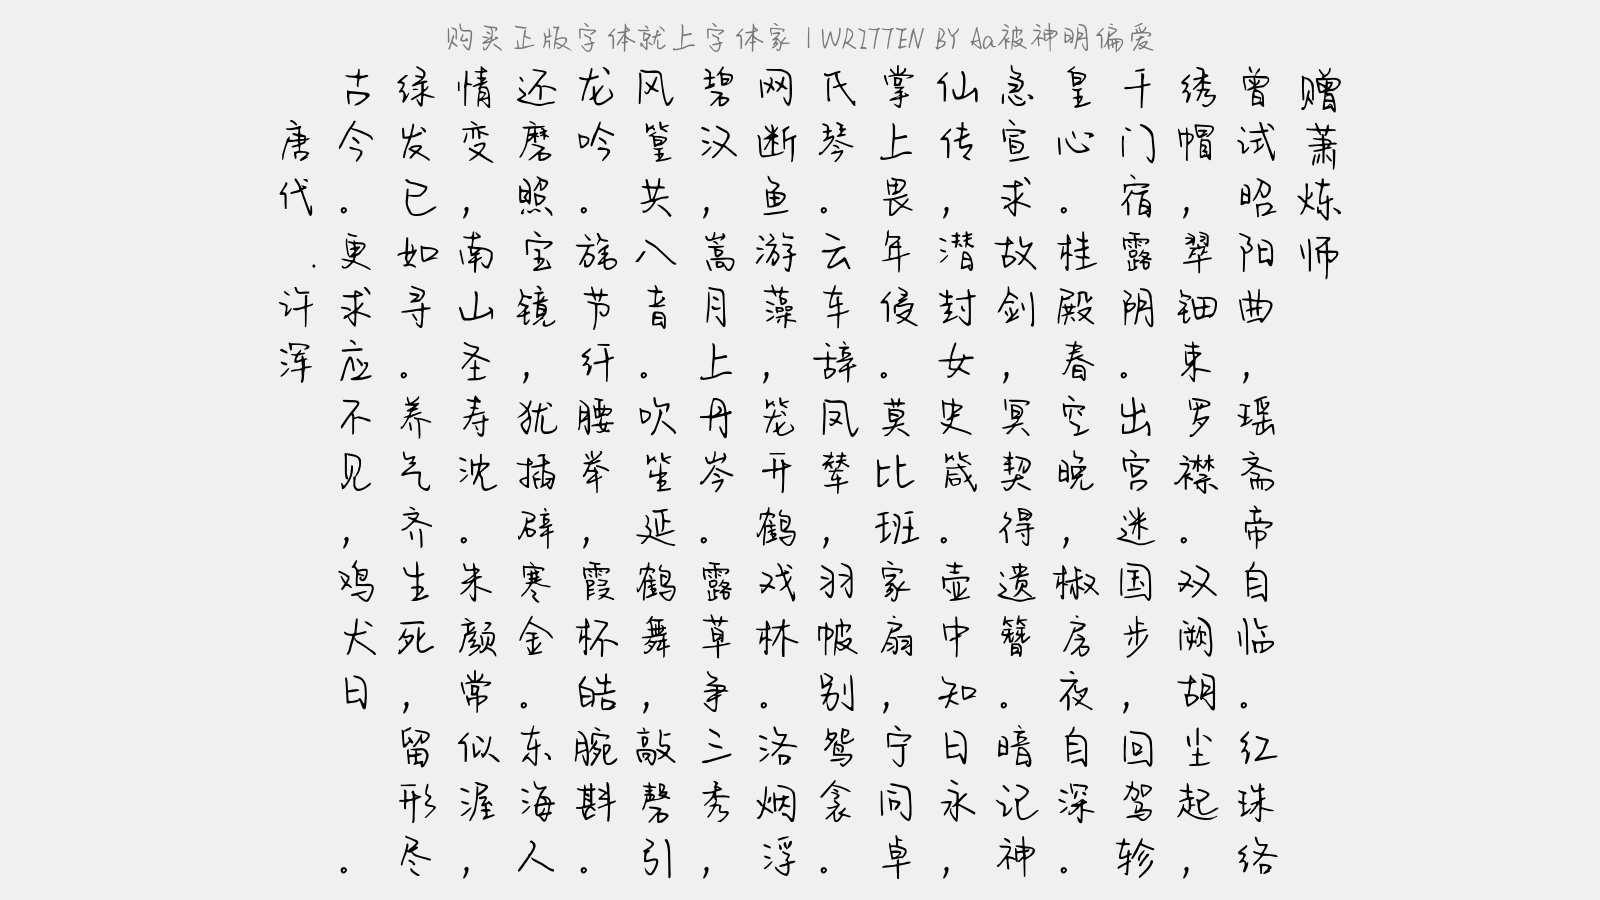 购买正版字体就上字体家 | WRITTEN BY Aa被神明偏爱
赠萧炼师
曾试昭阳曲，瑶斋帝自临。红珠络
绣帽，翠钿束罗襟。双阙胡尘起，
千门宿露阴。出宫迷国步，回驾轸
皇心。桂殿春空晚，椒房夜自深。
急宣求故剑，冥契得遗簪。暗记神
仙传，潜封女史箴。壶中知日永，
掌上畏年侵。莫比班家扇，宁同卓
氏琴。云车辞凤辇，羽帔别鸳衾。
网断鱼游藻，笼开鹤戏林。洛烟浮
碧汉，嵩月上丹岑。露草争三秀，
风篁共八音。吹笙延鹤舞，敲磬引
龙吟。旄节纤腰举，霞杯皓腕斟。
还磨照宝镜，犹插辟寒金。东海人
情变，南山圣寿沈。朱颜常似渥，
绿发已如寻。养气齐生死，留形尽
古今。更求应不见，鸡犬日。
唐代.许浑